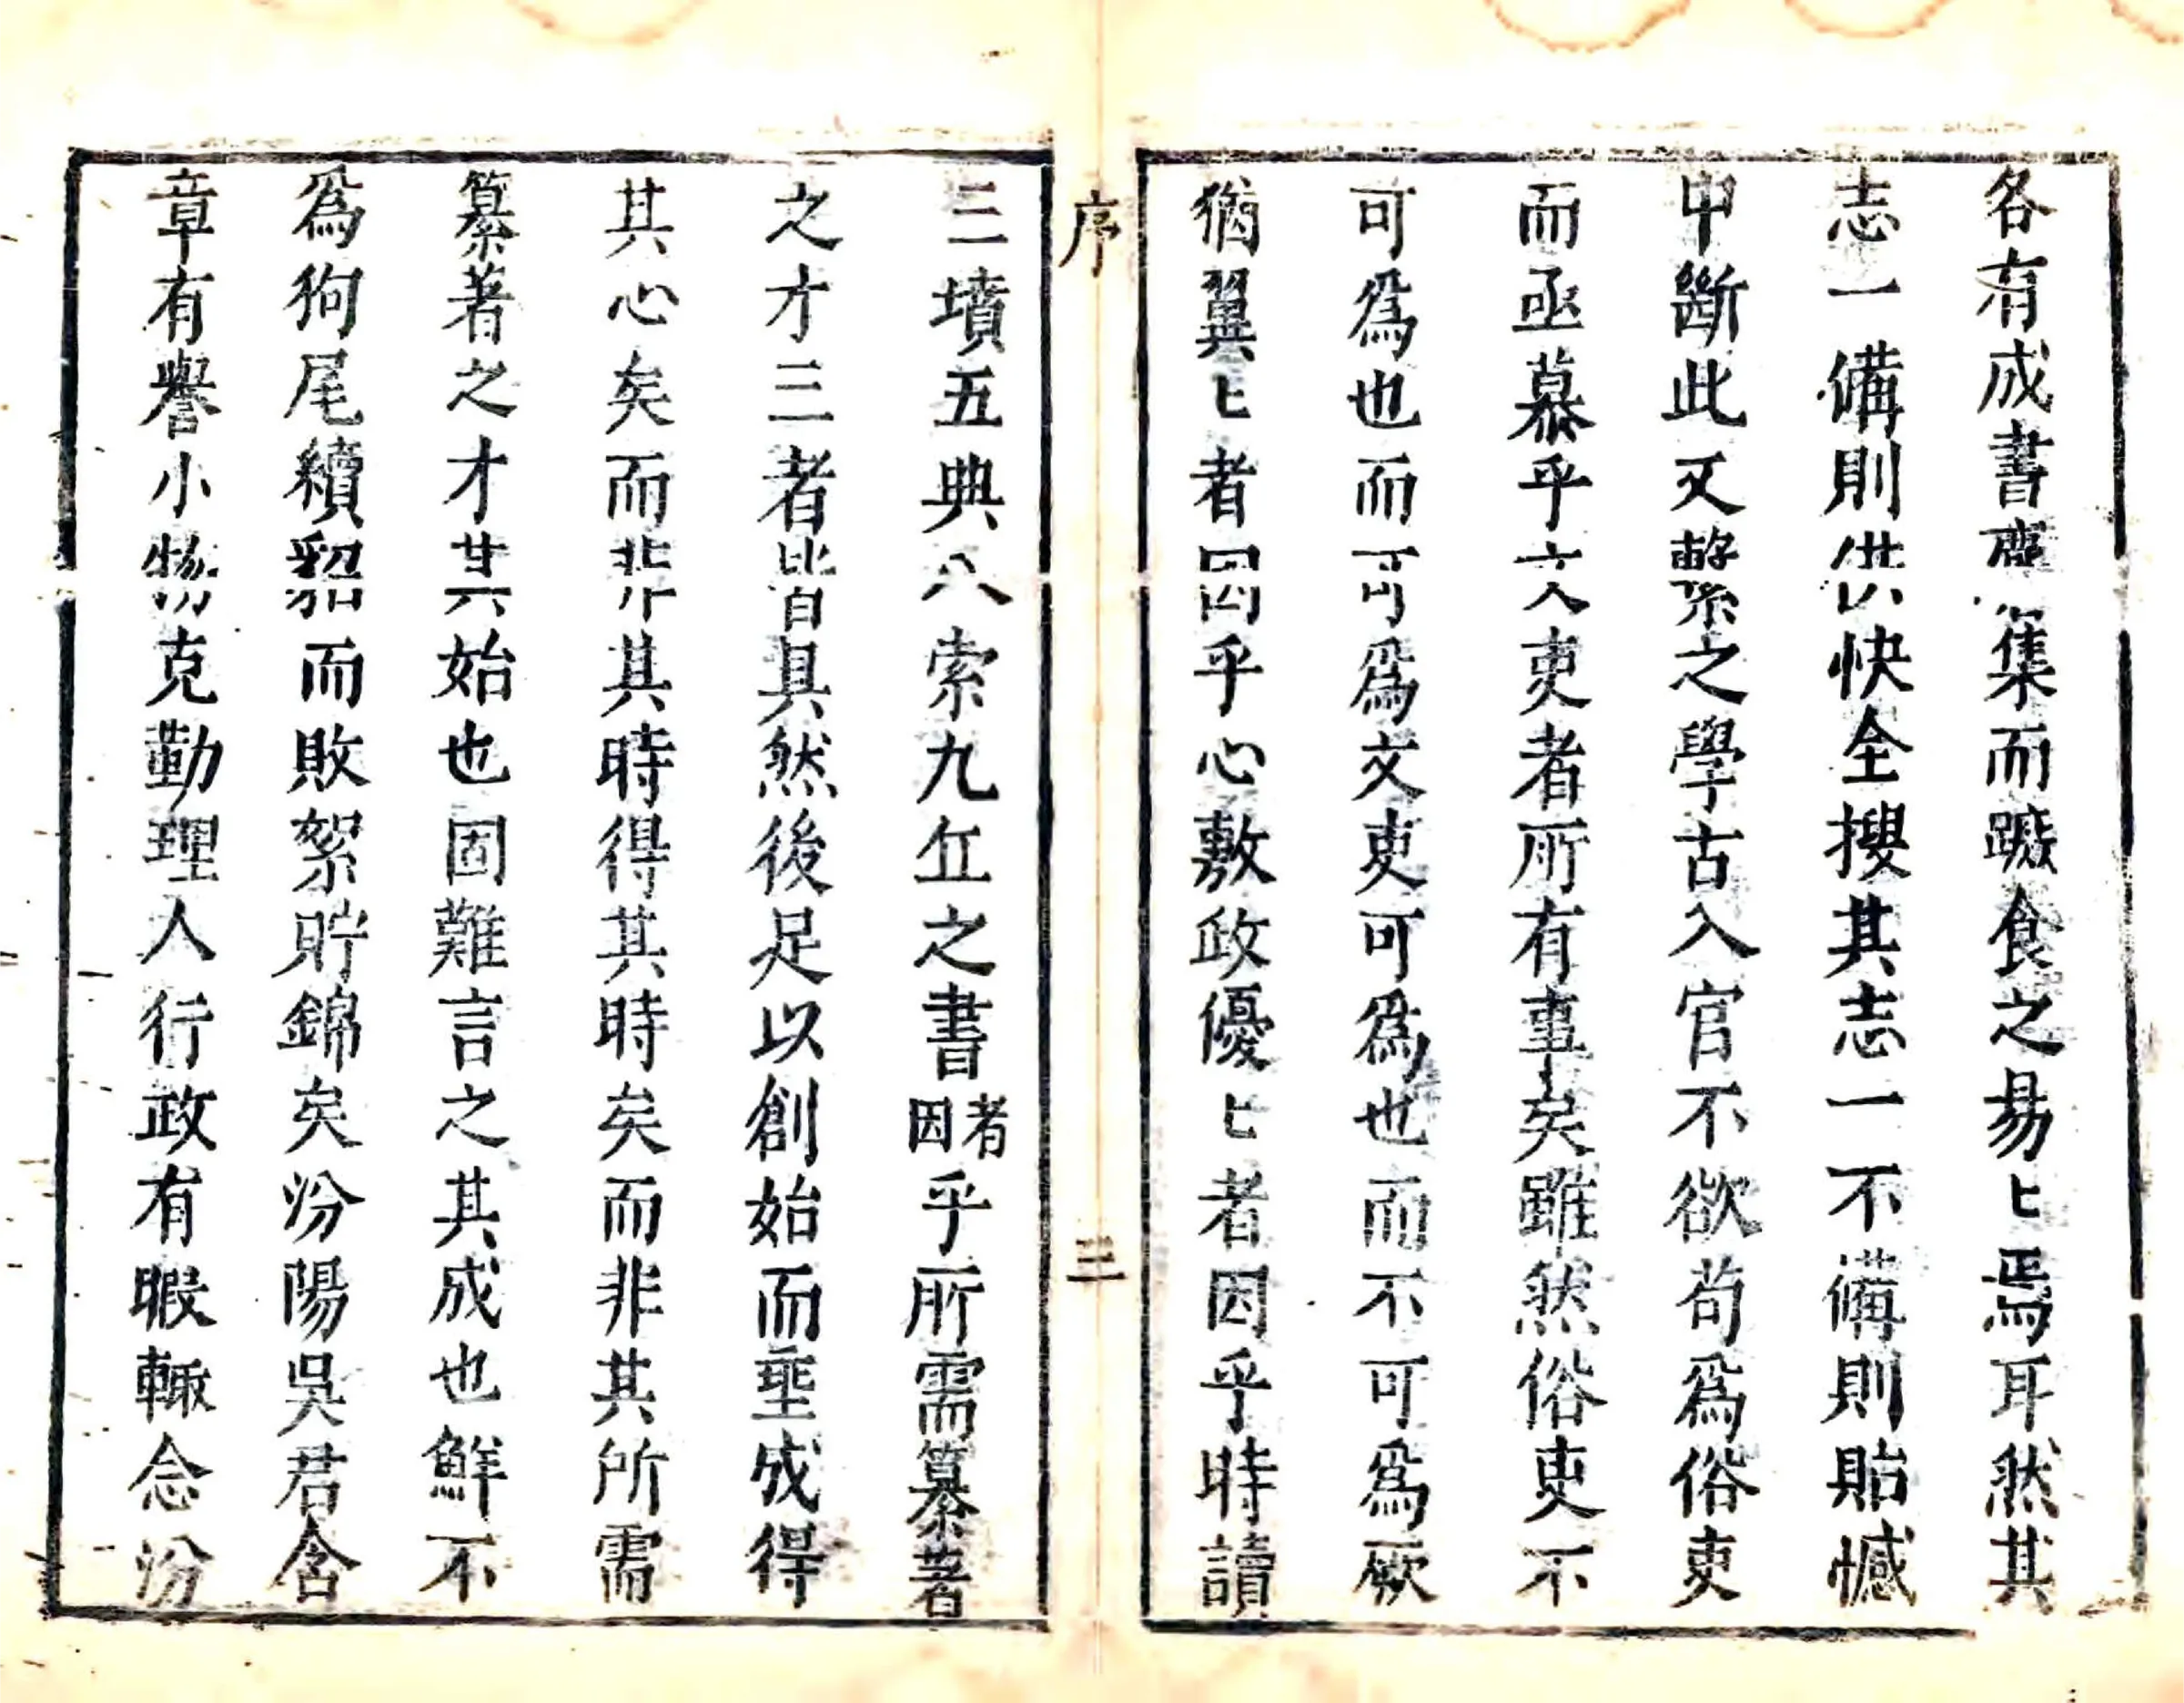 各有成書麕集而蹶食之易匕焉耳然其
志一備則供快全搜其志一不備則貽憾
中斷此又繫之學古入官不欲苟爲俗吏
而亟慕乎文吏者所有事矣雖然俗吏不
可爲也而可爲文吏可爲也而不可爲厥
猶翼匕者因乎心敷政優匕者因乎時讀
序
三
三墳五典八索九丘之書者因乎所需纂著
之才三者皆具然後足以創始而垂成得
其心矣而非其時得其時矣而非其所需
纂著之才其始也固難言之其成也鮮不
爲狗尾續貂而敗絮貯錦矣汾陽吳君含
章有譽小物克勤理人行政有暇輙念汾